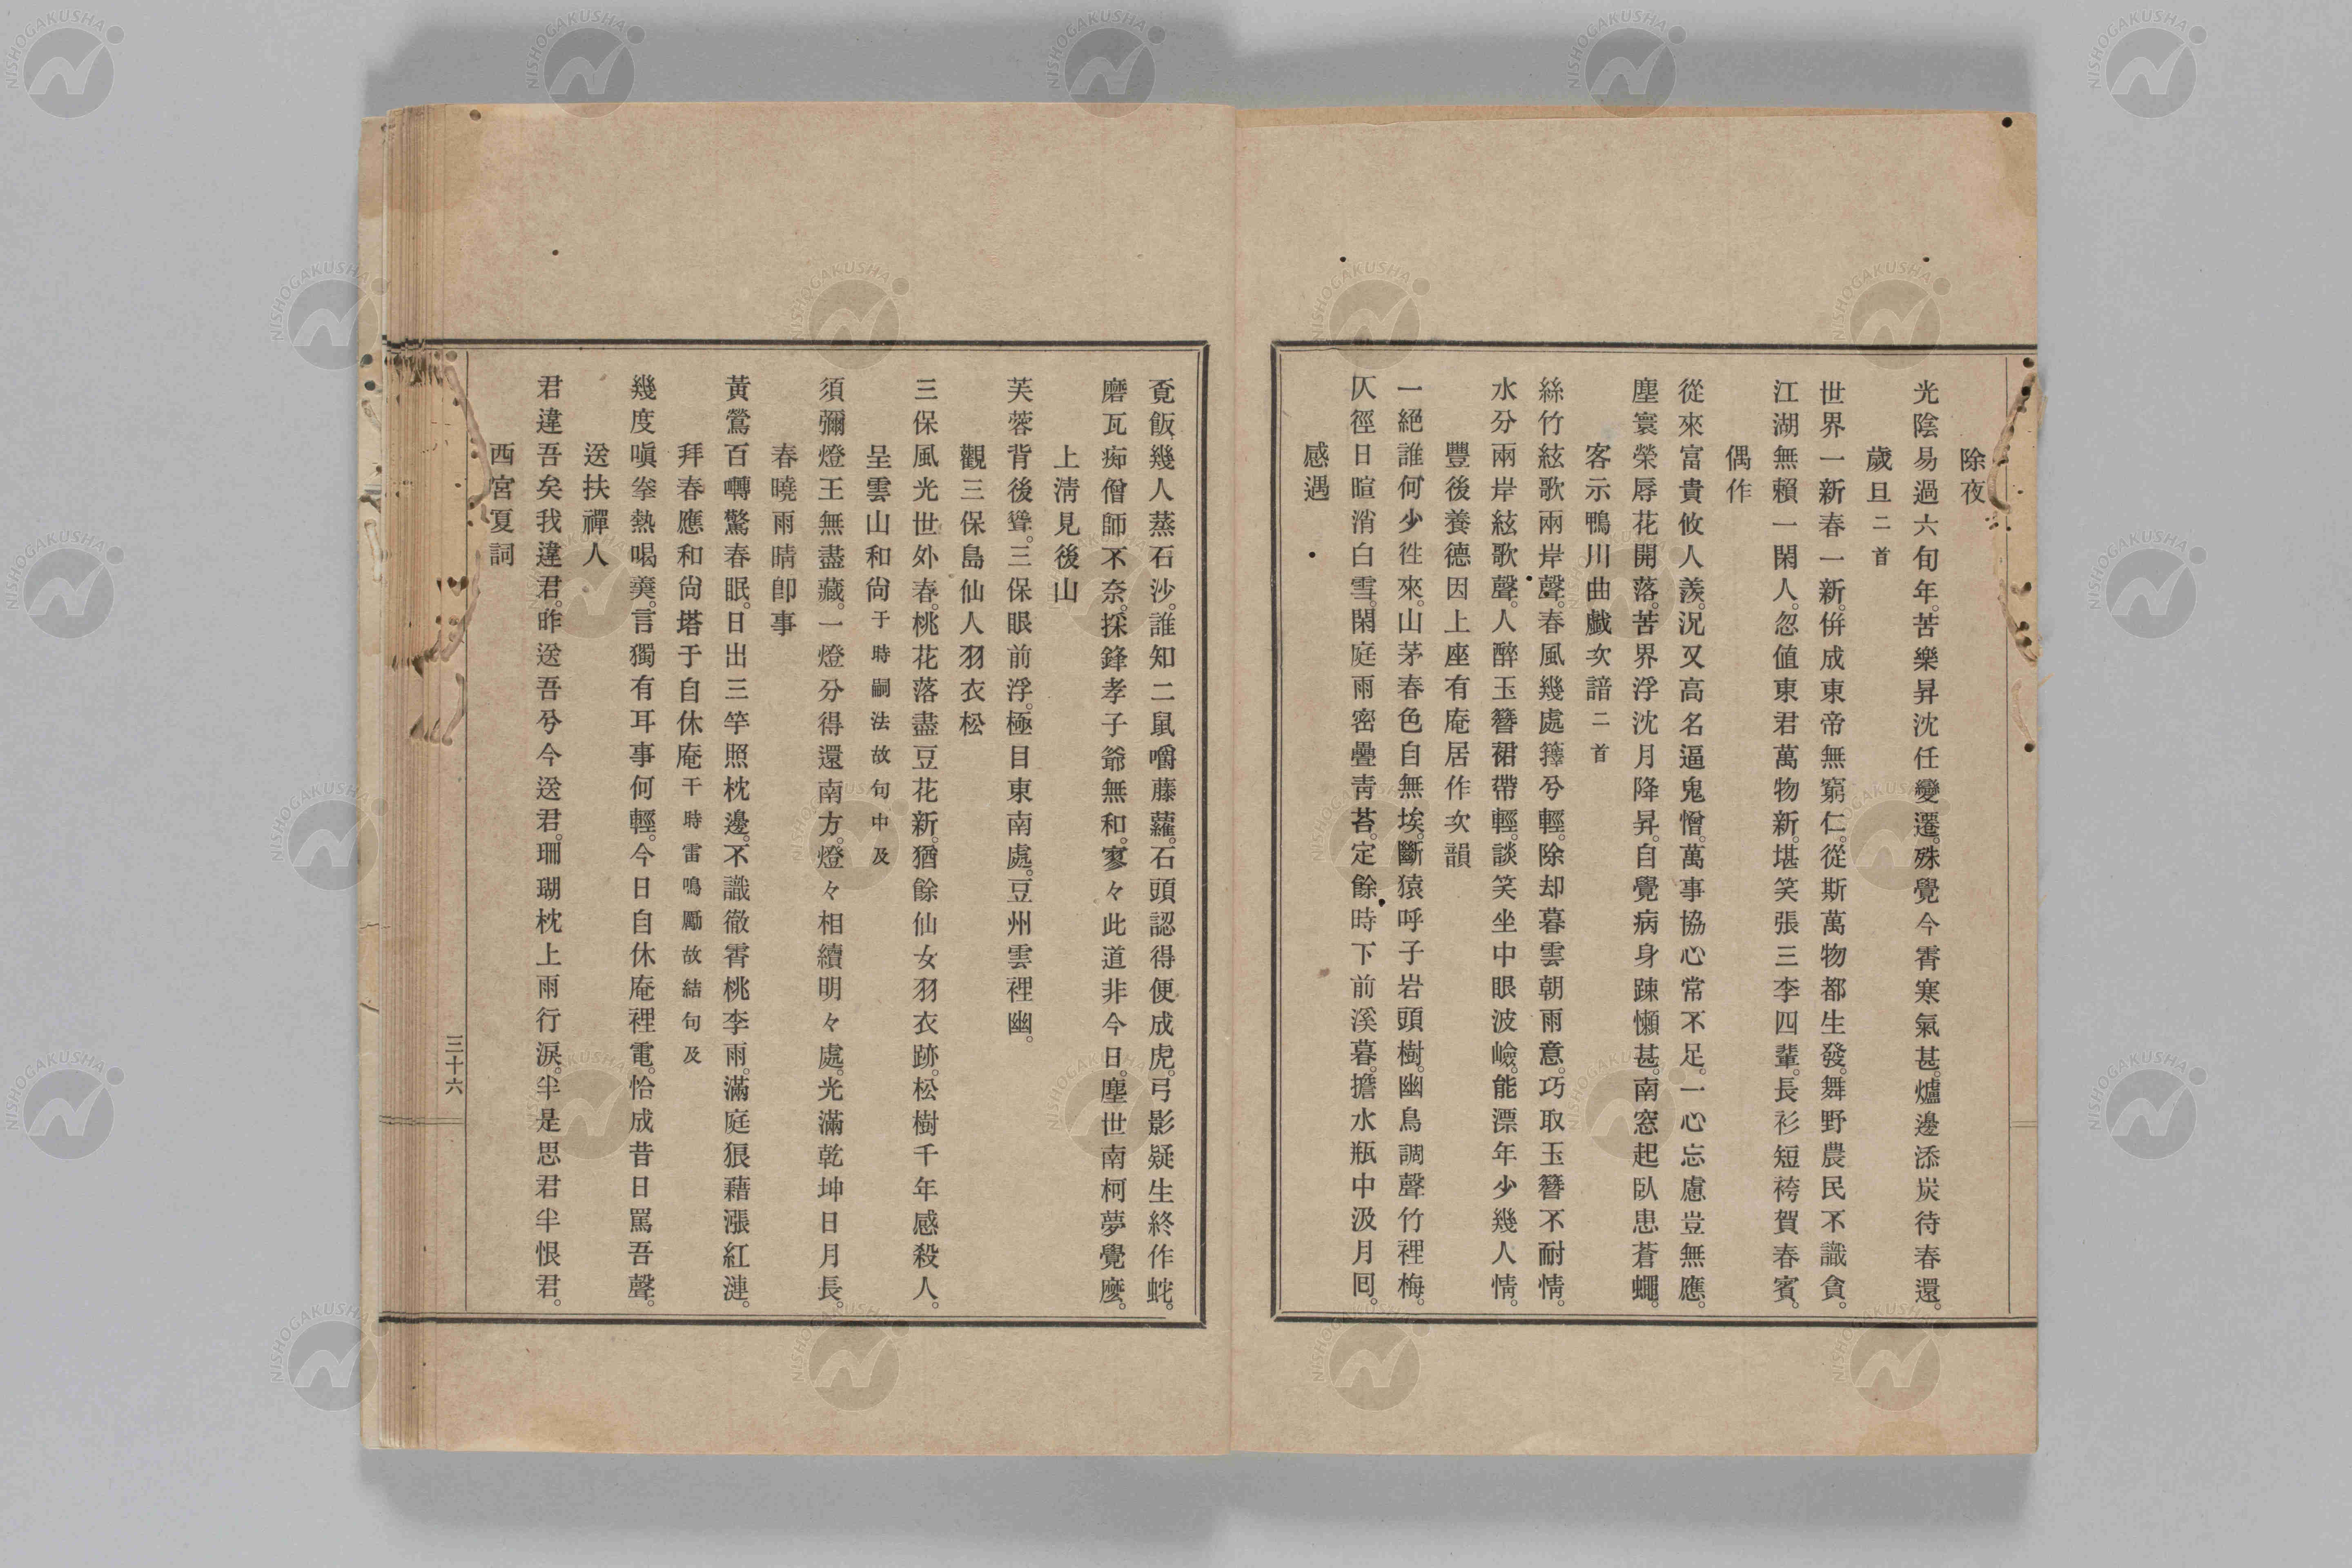 除夜
光陰易過六旬年。苦樂昇沈任變遷。殊覺今霄寒氣甚。爐邊添炭待春還。
歲旦二首
世界一新春一新。倂成東帝無窮仁。從斯萬物都生發。舞野農民不識貪。
江湖無賴一閑人。忽値東君萬物新。堪笑張三李四輩。長衫短袴賀春賓。
偶作
從來富貴攸人羨。況又高名逼鬼憎。萬事協心常不足。一心忘慮豈無應。
塵寰榮辱花開落。苦界浮沈月降昇。自覺病身踈懶甚。南窓起臥患蒼蠅。
客示鴨川曲戲次諳二首
絲竹絃歌兩岸聲。春風幾處籜兮輕。除却暮雲朝雨意。巧取玉簪不耐情。
水分兩岸絃歌聲。人醉玉簪裙帶輕。談笑坐中眼波嶮。能漂年少幾人情。
豐後養德因上座有庵居作次韻
一絕誰何少徃來。山茅春色自無埃。斷猿呼子岩頭樹。幽鳥調聲竹裡梅。
仄徑日暄消白雪。閑庭雨密疊靑苔。定餘時下前溪暮。擔水瓶中汲月囘。
感遇
覔飯幾人蒸石沙。誰知二鼠嚼藤蘿。石頭認得便成虎。弓影疑生終作蛇。
磨瓦痴僧師不奈。採鋒孝子爺無和。寥々此道非今日。塵世南柯夢覺麼。
上淸見後山
芙蓉背後聳。三保眼前浮。極目東南處。豆州雲裡幽。
觀三保島仙人羽衣松
三保風光世外春。桃花落盡豆花新。猶餘仙女羽衣跡。松樹千年感殺人。
呈雲山和尙于時嗣法故句中及
須彌燈王無盡藏。一燈分得還南方。燈々相續明々處。光滿乾坤日月長。
春曉雨晴卽事
黃鶯百囀驚春眠。日出三竿照枕邊。不識徹霄桃李雨。滿庭狼藉漲紅漣。
拜春應和尙塔于自休庵干時雷鳴勵故結句及
幾度嗔拳熱喝羹。言獨有耳事何輕。今日自休庵裡電。恰成昔日罵吾聲。
送扶禪人
君違吾矣我違君。昨送吾兮今送君。珊瑚枕上雨行淚。半是思君半恨君。
西宮夏詞
三十六